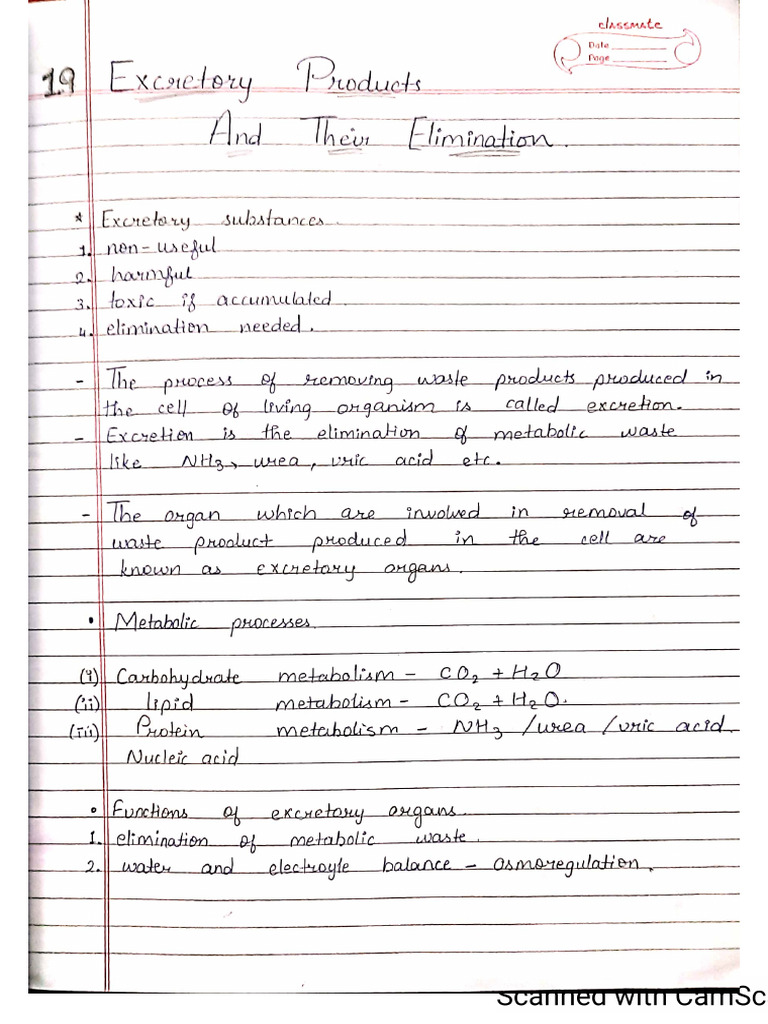 classmate
Date
Page
19 Excretory Products
And Their Elimination.
* Excretory substances.
1. non-useful
2. harmful
3. toxic if accumulated.
4. elimination needed.
- The process of removing waste products produced in
the cell of living organism is called excretion.
- Excretion is the elimination of metabolic waste
like NH3, urea, uric acid etc.
- The organ which are involved in removal of
waste product produced in the cell are
known as excretory organs.
• Metabolic processes.
(i) Carbohydrate metabolism - CO2 + H2O
(ii) lipid metabolism - CO2 + H2O.
(iii) Protein metabolism - NH3 /urea /uric acid.
Nucleic acid
• Functions of excretory organs.
1. elimination of metabolic waste.
2. water and electroyle balance - osmoregulation.
Scanned with CamSc